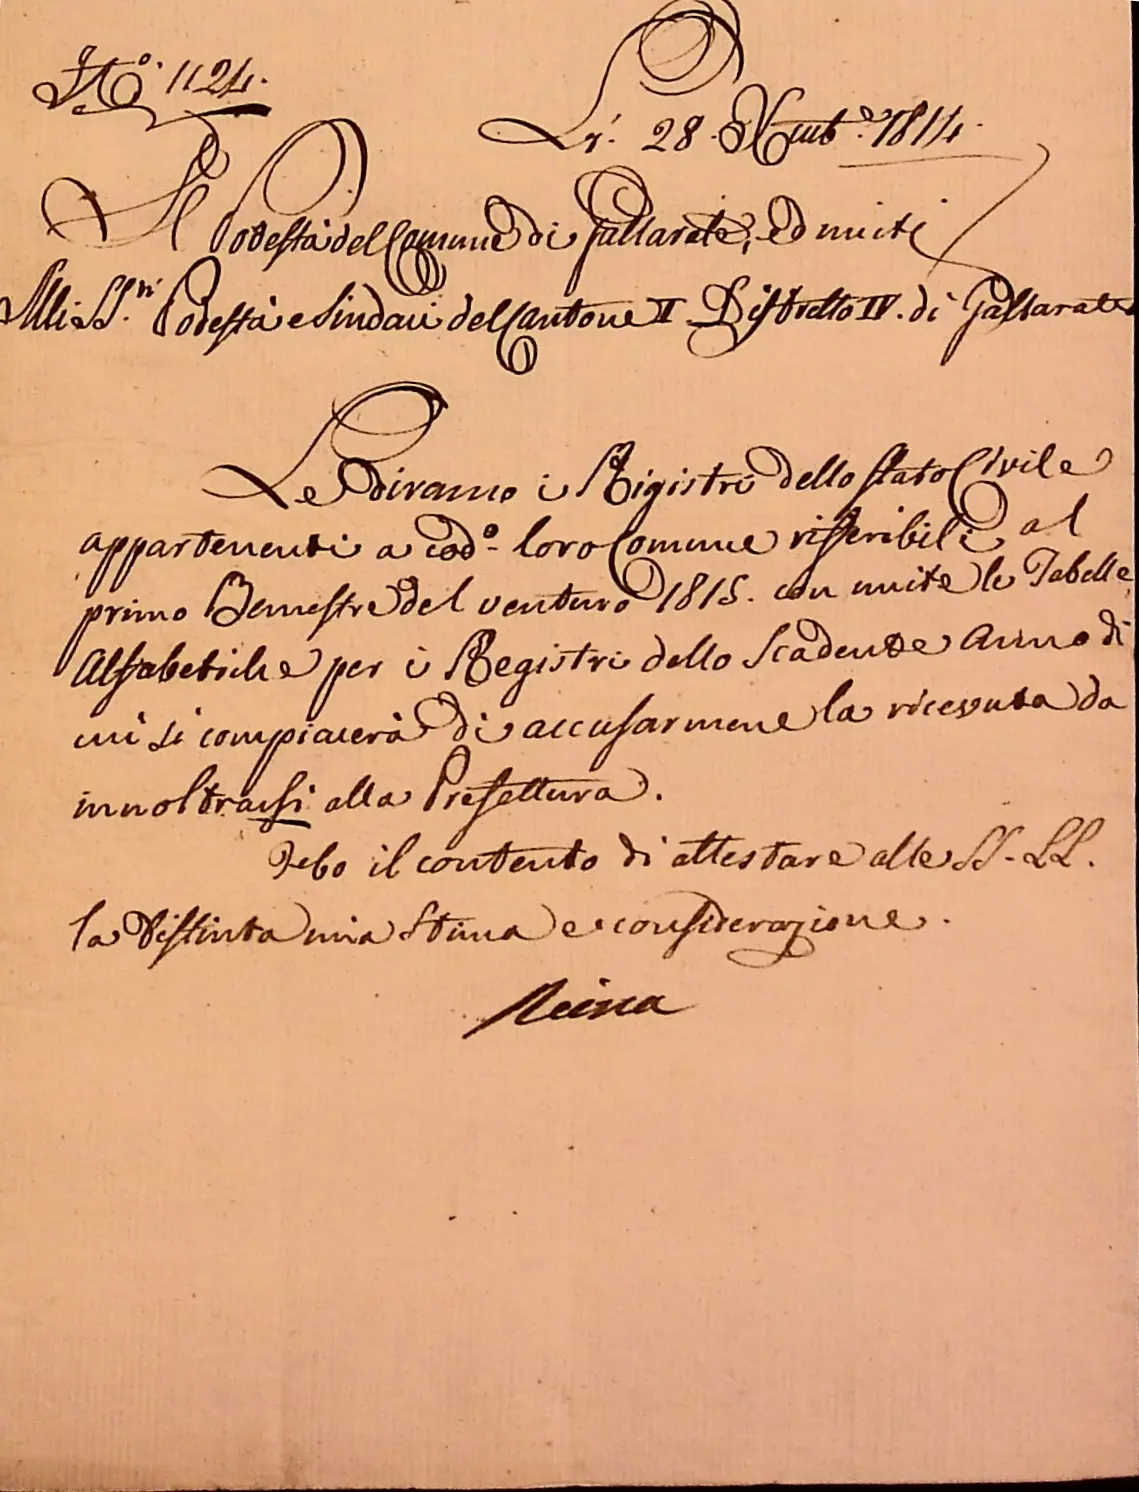 N.º 1124.
Li. 28. Xmb.e 1814.
Il Podestà del Comune di Gallarate, ed uniti
Alli SS.ri Podestà e Sindaci del Cantone II Distretto IV. di Gallarate
Le diramo i Registri dello Stato Civile
appartenenti a cod.o loro Comune rifferibili al
primo Semestre del venturo 1815. con unite le Tabelle
Alfabetiche per i Registri dello Scadente Anno di
cui si compiacerà di accusarmene la ricevuta da
innoltrarsi alla Prefettura.
Debo il contento di attestare alle SS. LL.
la distinta mia stima e considerazione.
Reina